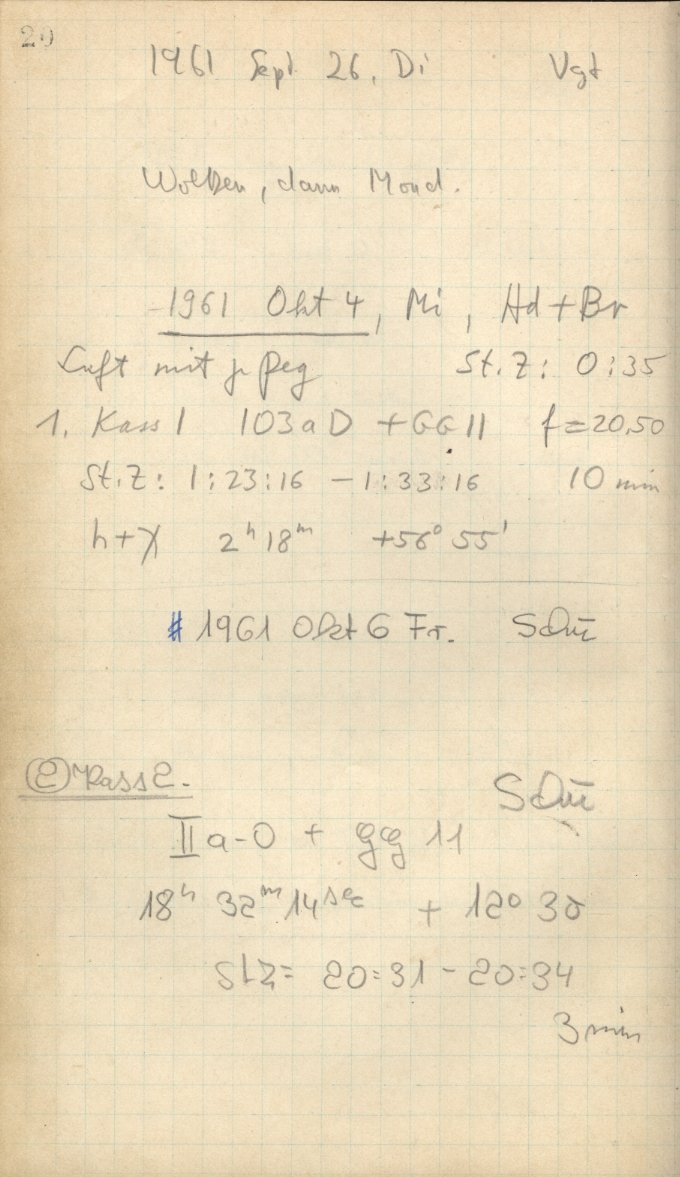 20
1961 Sept 26, Di Vgt
Wolken, dann Mond.
1961 Okt 4, Mi, Hd + Br
Luft mit γ Peg St.Z: 0:35
1. Kass 1 103aD + GG 11 f = 20,50
St.Z: 1:23:16 - 1:33:16 10 min
h + χ 2ʰ 18ᵐ +56° 55'
# 1961 Okt 6 Fr. Schü
② Kass 2.
Schü
II a-O + gg 11
18ʰ 32ᵐ 14ˢᵉᶜ + 12° 30
StZ = 20:31 - 20:34
3 min